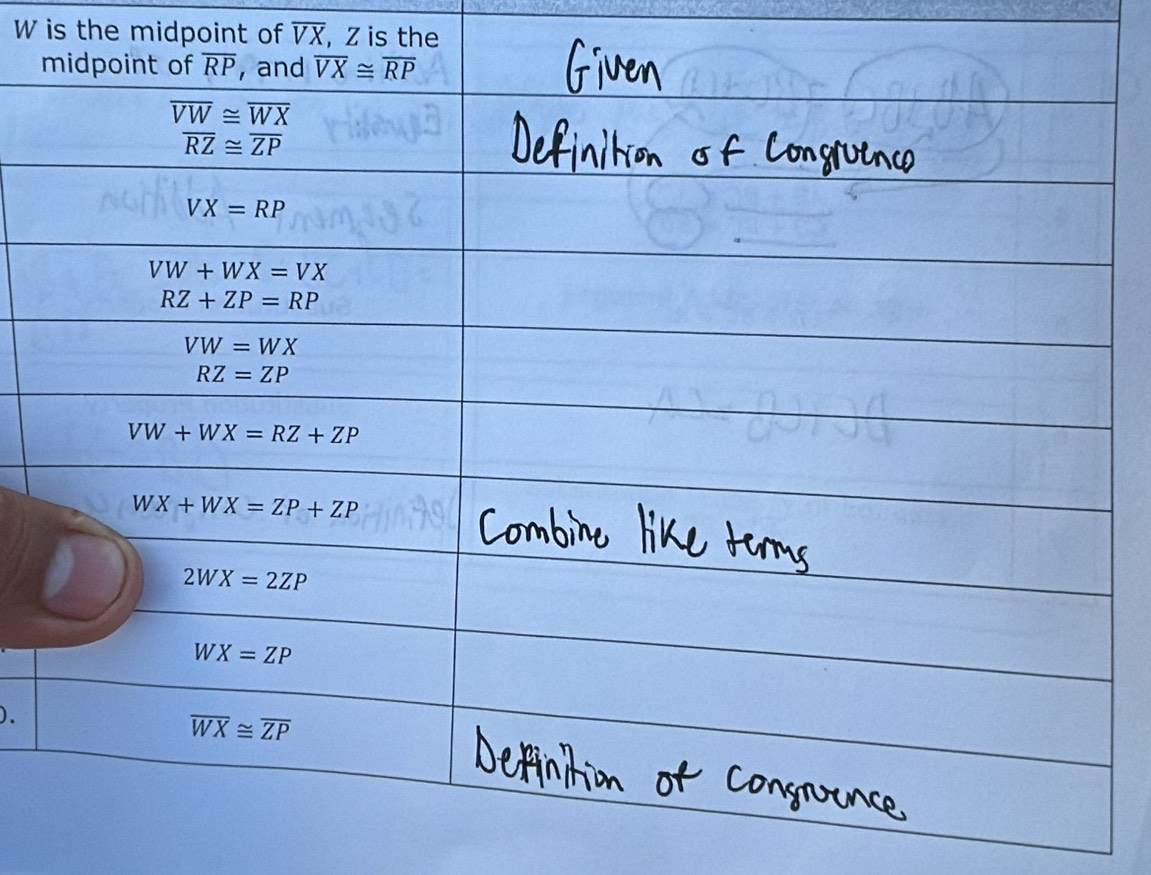 W is the midpoint of V͞X͞, Z is the
midpoint of R͞P͞, and V͞X͞ ≅ R͞P͞
Given
V͞W͞ ≅ W͞X͞
R͞Z͞ ≅ Z͞P͞
Definition of Congruence
VX = RP
VW + WX = VX
RZ + ZP = RP
VW = WX
RZ = ZP
VW + WX = RZ + ZP
WX + WX = ZP + ZP
Combine like terms
2WX = 2ZP
WX = ZP
W͞X͞ ≅ Z͞P͞
Definition of Congruence